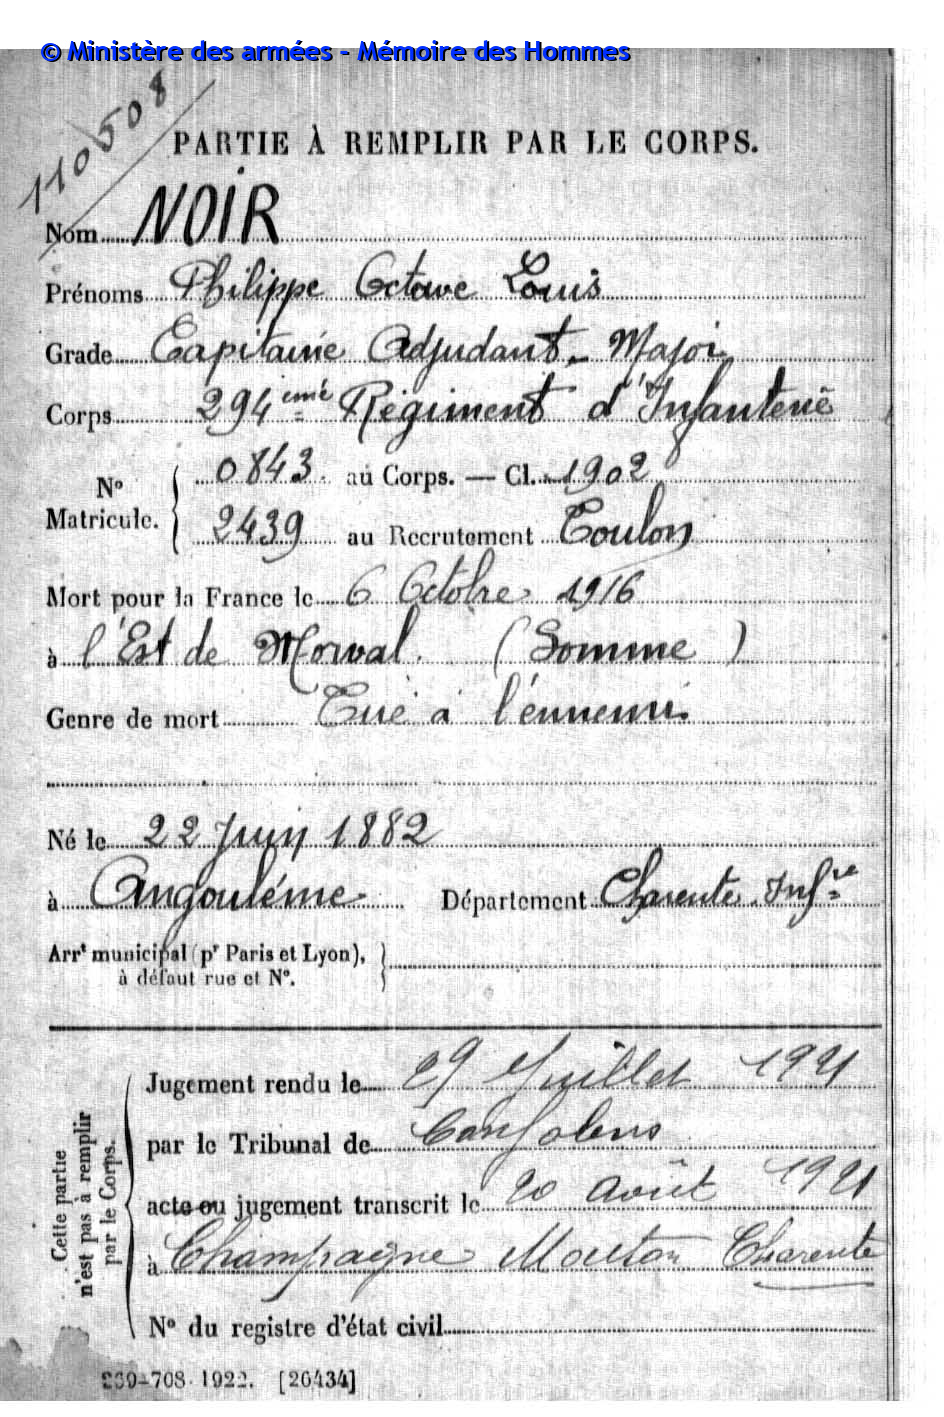 © Ministère des armées - Mémoire des Hommes
110508
PARTIE À REMPLIR PAR LE CORPS.
Nom NOIR
Prénoms Philippe Octave Louis
Grade Capitaine Adjudant-Major
Corps 294eme Régiment d'Infanterie
N° Matricule. 0843 au Corps. — Cl. 1902
2439 au Recrutement Toulon
Mort pour la France le 6 Octobre 1916
à l'Est de Morval (Somme)
Genre de mort Tué à l'ennemi
Né le 22 Juin 1882
à Angoulême Département Charente Infre
Arrt municipal (pr Paris et Lyon),
à défaut rue et N°.
Cette partie
n'est pas à remplir
par le Corps.
Jugement rendu le 29 Juillet 1921
par le Tribunal de Confolens
acte ou jugement transcrit le 20 Août 1921
à Champagne Mouton Charente
N° du registre d'état civil
269-708. 1922. [26434]